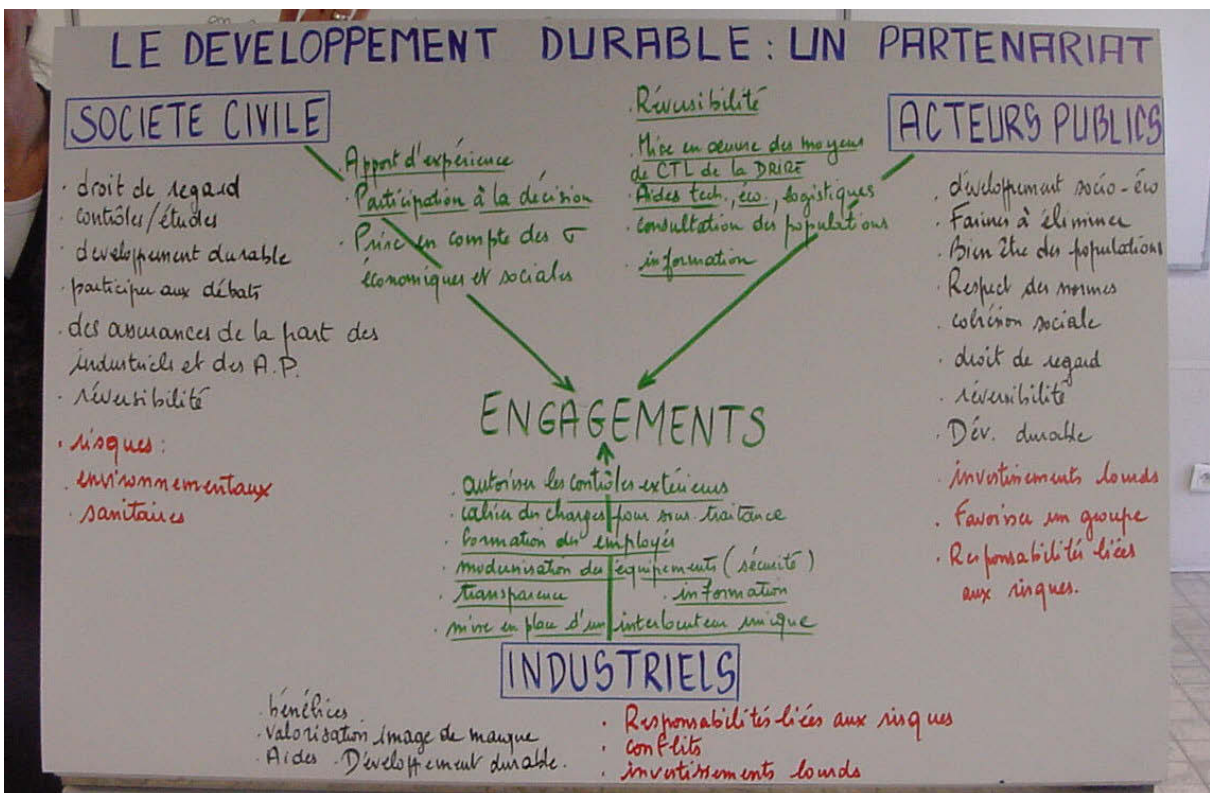 LE DEVELOPPEMENT DURABLE : UN PARTENARIAT
SOCIETE CIVILE
· droit de regard
· contrôles/études
· developpement durable
· participer aux débats
· des assurances de la part des
industriels et des A.P.
· réversibilité
· risques :
· environnementaux
· sanitaires
· Apport d'expérience
· Participation à la décision
· Prise en compte des σ
économiques et sociales
· Réversibilité
· Mise en oeuvre des moyens
de CTL de la DRIRE
· Aides tech., éco., logistiques
· consultation des populations
· information
ACTEURS PUBLICS
· développement socio-éco
· Farines à éliminer
· Bien être des populations
· Respect des normes
· cohésion sociale
· droit de regard
· réversibilité
· Dév. durable
· investissements lourds
· Favoriser un groupe
· Responsabilités liées
aux risques.
ENGAGEMENTS
· autoriser les contrôles extérieurs
· cahier des charges pour sous-traitance
· formation des employés
· modernisation des équipements (sécurité)
· transparence · information
· mise en place d'un interlocuteur unique
INDUSTRIELS
· bénéfices
· valorisation image de marque
· Aides · Développement durable.
· Responsabilités liées aux risques
· conflits
· investissements lourds